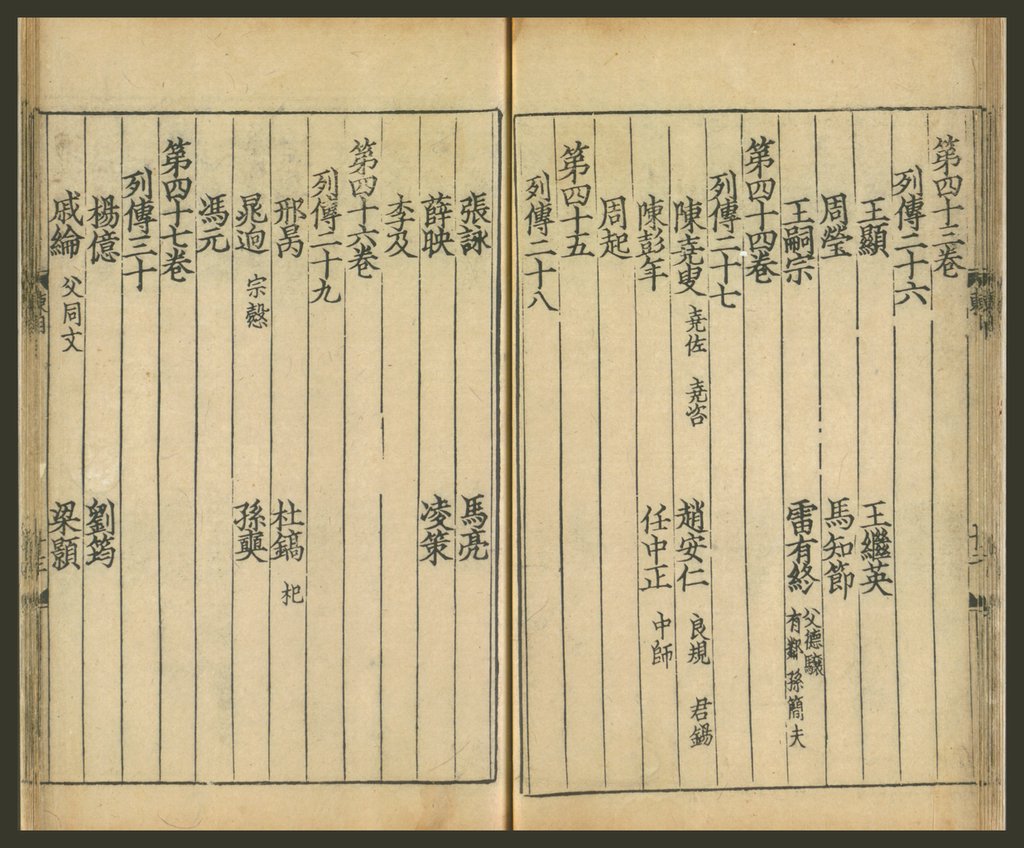 第四十三卷
列傳二十六
王顯 王繼英
周瑩 馬知節
王嗣宗 雷有終 父德驤 有鄰 孫簡夫
第四十四卷
列傳二十七
陳堯叟 堯佐 堯咨 趙安仁 良規 君錫
陳彭年 任中正 中師
周起
第四十五
列傳二十八
張詠 馬亮
薛映 凌策
李及
第四十六卷
列傳二十九
邢昺 杜鎬 杞
晁迥 宗愨 孫奭
馮元
第四十七卷
列傳三十
楊億 劉筠
戚綸 父同文 梁顥